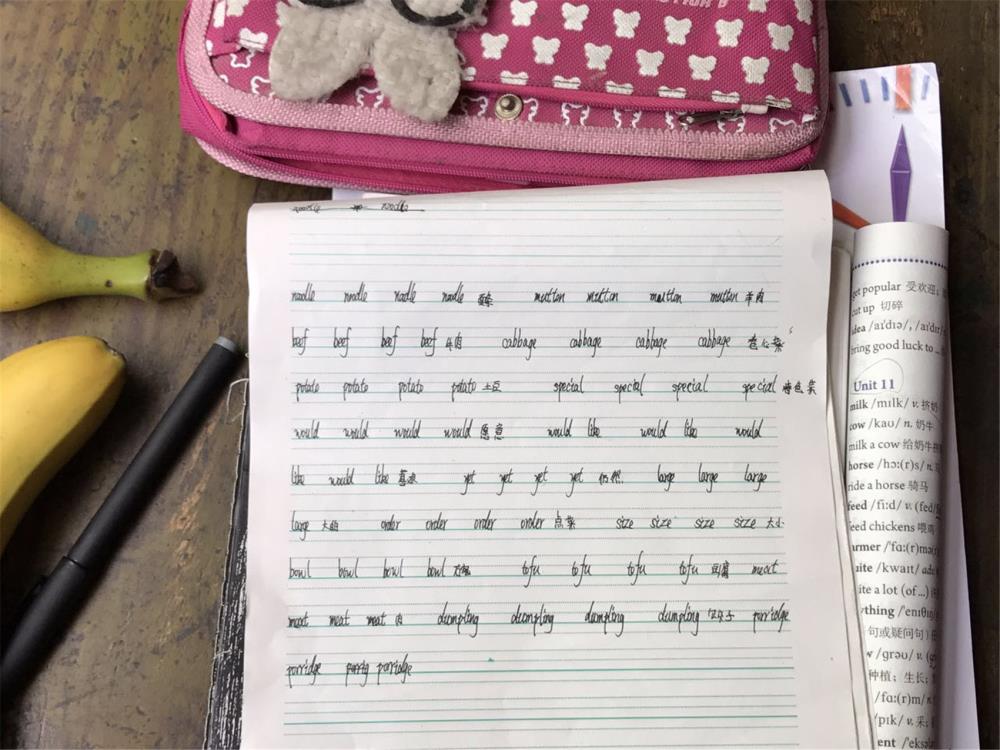 noodle noodle
noodle noodle noodle noodle 面条 mutton mutton mutton mutton 羊肉
beef beef beef beef 牛肉 cabbage cabbage cabbage cabbage 卷心菜
potato potato potato potato 土豆 special special special special 特色菜
would would would would 愿意 would like would like would
like would like 喜欢 yet yet yet yet 仍然 large large large
large 大的 order order order order 点菜 size size size size 大小
bowl bowl bowl bowl tofu tofu tofu tofu 豆腐 meat
meat meat meat 肉 dumpling dumpling dumpling dumpling 饺子 porridge
porridge porrig porridge
get popular 受欢迎;
cut up 切碎
idea /aɪˈdɪə/, /aɪˈdɪr
bring good luck to ..
Unit 11
milk /mɪlk/ v. 挤奶
cow /kaʊ/ n. 奶牛
milk a cow 给奶牛挤
horse /hɔː(r)s/ n. 马
ride a horse 骑马
feed /fiːd/ v. (fed/
feed chickens 喂鸡
armer /ˈfɑː(r)mə(r
uite /kwaɪt/ adv
ite a lot (of ...) 许
ything /ˈenɪθɪŋ/
句或疑问句)任
w /ɡrəʊ/ v. (g
种植; 生长;
/fɑː(r)m/ n
/pɪk/ v. 采;
ent /ˈeksəl